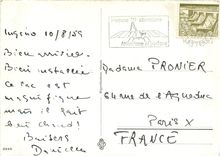 Lugano 10/8/59
Bien arrivée.
Bien installée
Le lac est
magnifique
mais il fait
bien chaud!
Baisers
Danièle
Madame PRONIER
64 rue de l'Aqueduc
Paris X
FRANCE